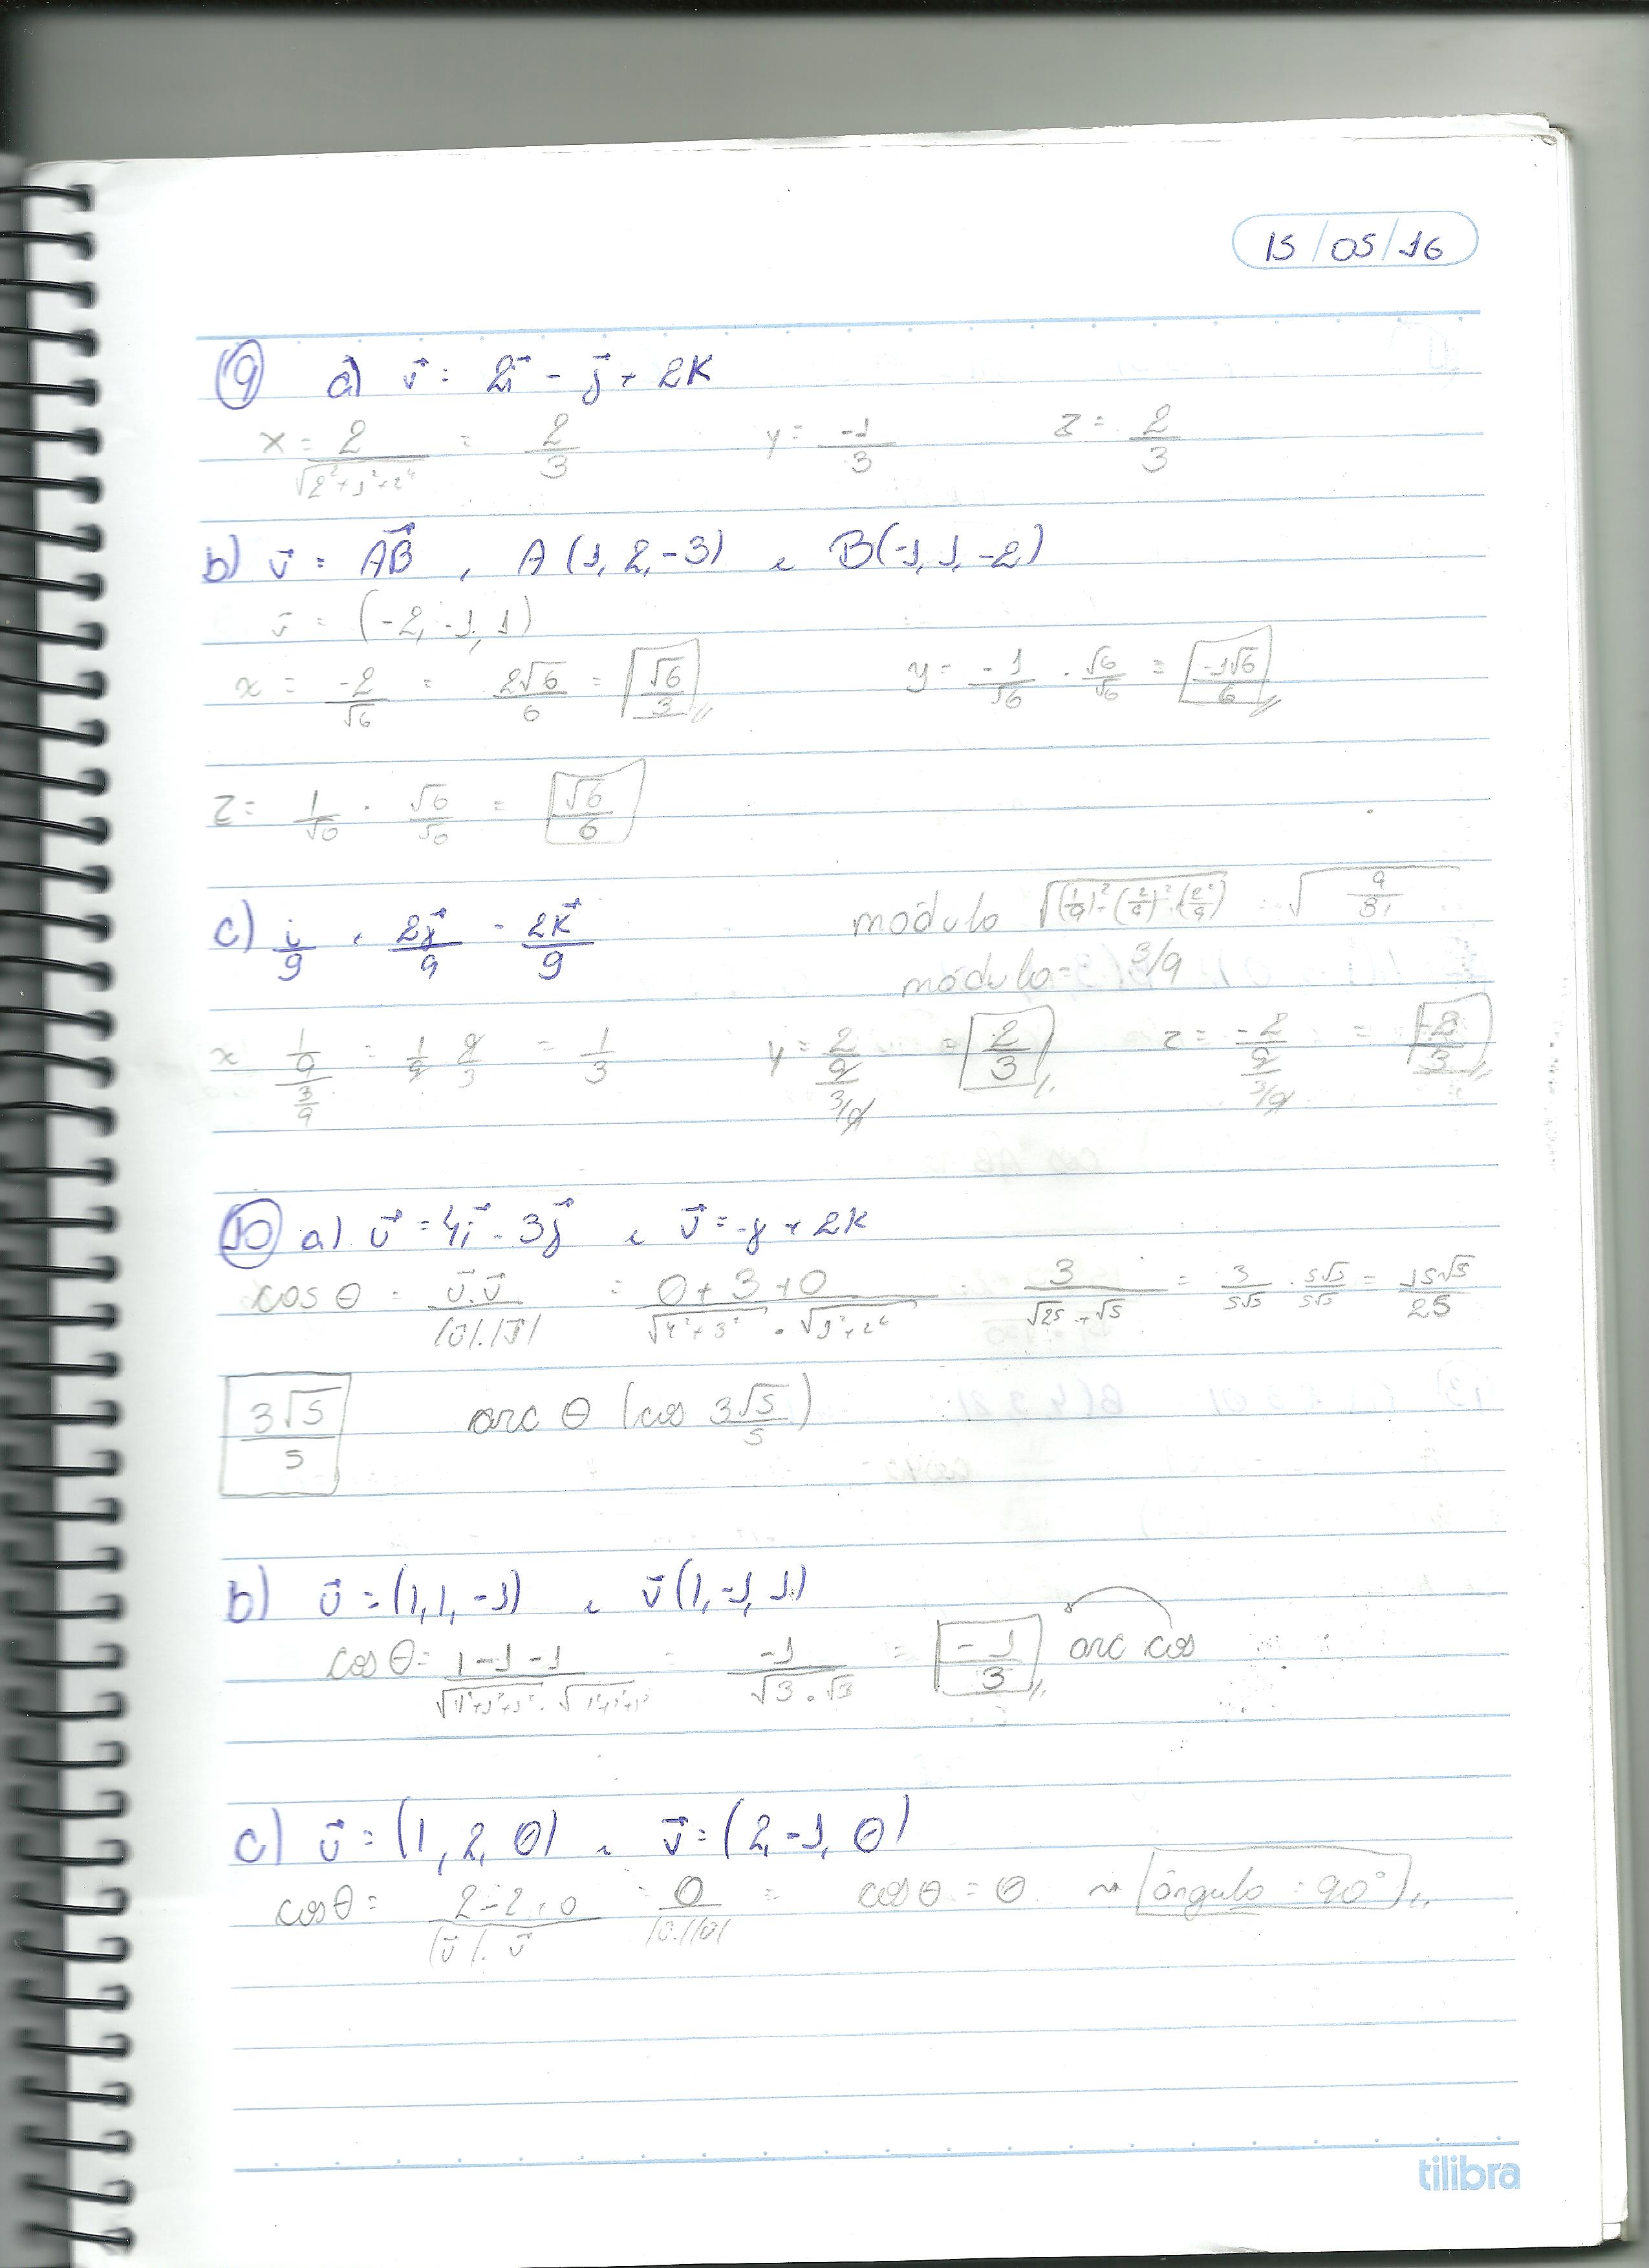 15/05/16
9 a) v⃗ = 2i⃗ - j⃗ + 2K
x = 2/√(2²+1²+2²) = 2/3 y = -1/3 z = 2/3
b) v⃗ = AB⃗, A(1, 2, -3) e B(-1, 1, -2)
v⃗ = (-2, -1, 1)
x = -2/√6 = 2√6/6 = √6/3 y = -1/√6 . √6/√6 = -1√6/6
z = 1/√6 . √6/√6 = √6/6
c) i/9 + 2j⃗/9 - 2K⃗/9 módulo √((1/9)²+(2/9)²+(2/9)²) = √(9/81)
módulo = 3/9
x (1/9)/(3/9) = 1/9 9/3 = 1/3 y = (2/9)/(3/9) = 2/3 z = (-2/9)/(3/9) = -2/3
10 a) u⃗ = 4i⃗ - 3j⃗ e v⃗ = -j + 2K
cos θ = u⃗.v⃗/|u⃗|.|v⃗| = 0+3+0/√(4²+3²) . √(1²+2²) = 3/√25 . √5 = 3/5√5 . 5√5/5√5 = 15√5/25
3√5/5 arc θ (cos 3√5/5)
b) u⃗ = (1, 1, -1) e v⃗(1, -1, 1)
cos θ = 1-1-1/√(1²+1²+1²) . √(1²+1²+1²) = -1/√3 . √3 = -1/3 arc cos
c) u⃗ = (1, 2, 0) e v⃗ = (2, -1, 0)
cos θ = 2-2+0/|u⃗|.v⃗ = 0/|u⃗|.|v⃗| = cos θ = 0 → ângulo = 90°
tilibra